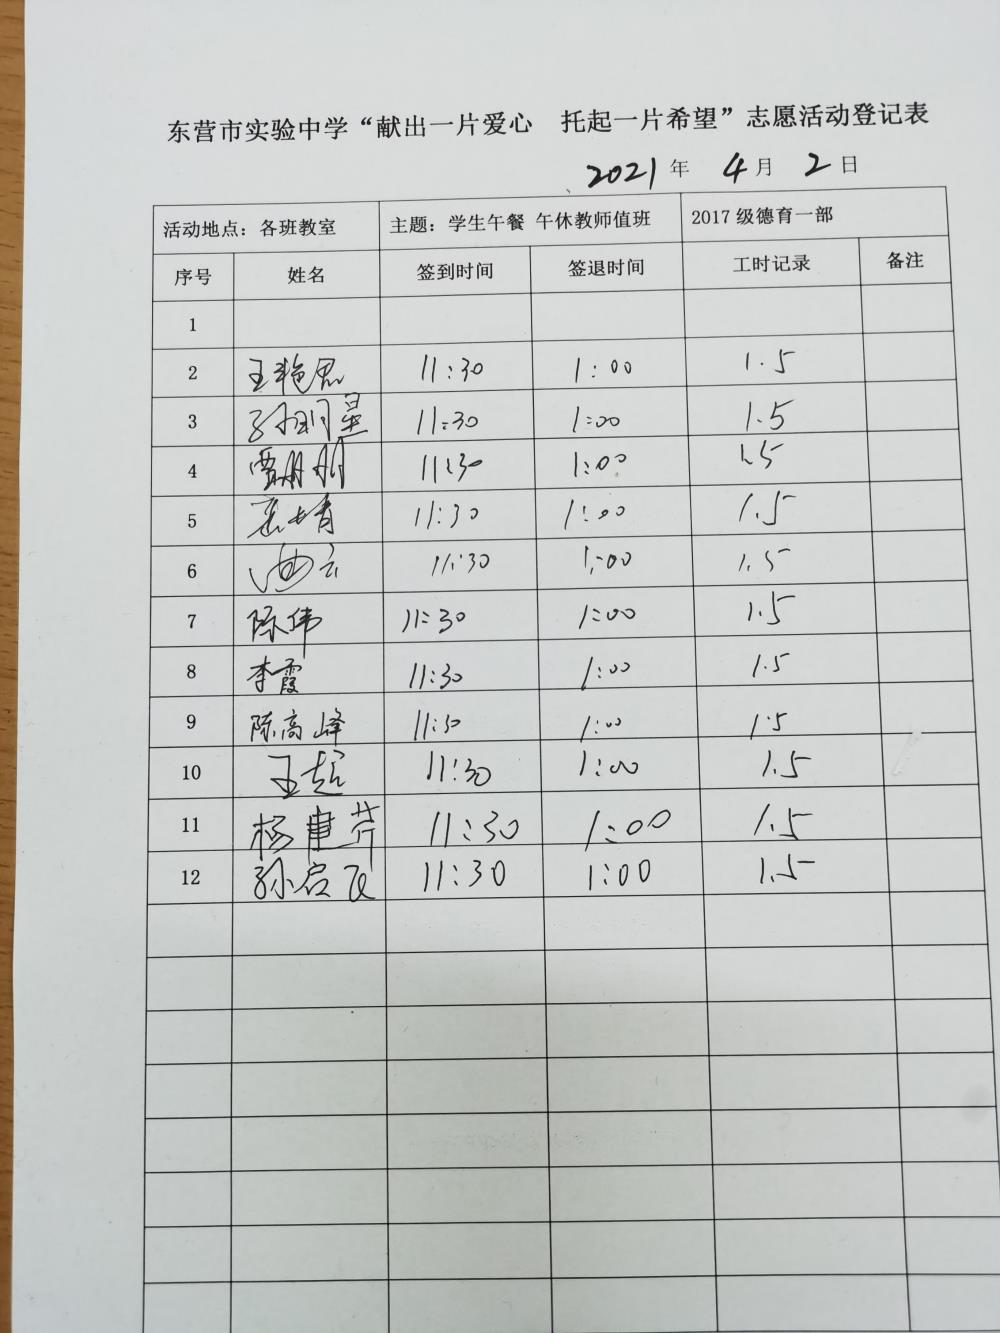 东营市实验中学“献出一片爱心 托起一片希望”志愿活动登记表
2021 年 4 月 2 日
活动地点：各班教室 主题：学生午餐 午休教师值班 2017 级德育一部
序号 姓名 签到时间 签退时间 工时记录 备注
1
2 王艳思 11:30 1:00 1.5
3 孙明星 11:30 1:00 1.5
4 贾朋朋 11:30 1:00 1.5
5 11:30 1:00 1.5
6 11:30 1:00 1.5
7 陈伟 11:30 1:00 1.5
8 李霞 11:30 1:00 1.5
9 陈高峰 11:30 1:00 1.5
10 王超 11:30 1:00 1.5
11 杨建芹 11:30 1:00 1.5
12 孙启飞 11:30 1:00 1.5